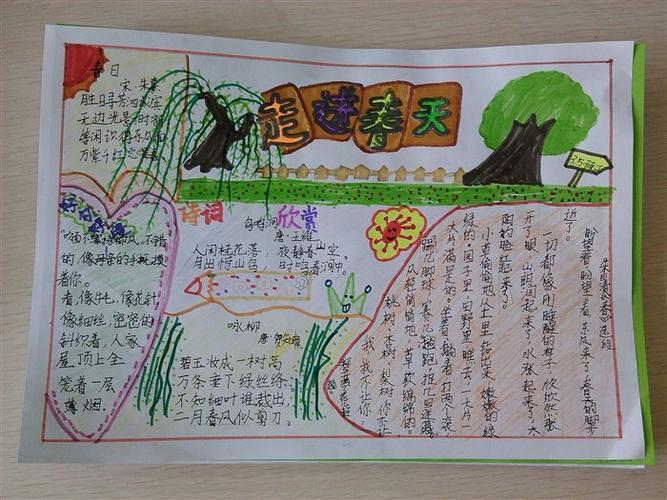 走进春天
春日
宋·朱熹
胜日寻芳泗水滨
无边光景一时新
等闲识得东风面
万紫千红总是春
好句
"吹面不寒杨柳风",不错
的,像母亲的手抚摸
着你。
看,像牛毛,像花针
像细丝,密密的
斜织着,人家
屋顶上全
笼着一层
薄烟。
诗词
欣赏
鸟鸣涧
唐·王维
人闲桂花落,夜静春山空
月出惊山鸟,时鸣春涧中。
咏柳
唐 贺知章
碧玉妆成一树高
万条垂下绿丝绦
不知细叶谁裁出
二月春风似剪刀。
朱自清《春》选段
盼望着,盼望着,东风来了,春天的脚步
近了。
一切都像刚睡醒的样子,欣欣然张
开了眼,山朗润起来了,水涨起来了,太
阳的脸红起来了。
小草偷偷地从土里钻出来,嫩嫩的,绿
绿的。园子里,田野里,瞧去,一大片一
大片满是的。坐着,躺着,打两个滚,
踢几脚球,赛几趟跑,捉几回迷藏。
风轻悄悄地,草软绵绵的。
桃树,杏树,梨树,你不让
我,我不让你
都开满花